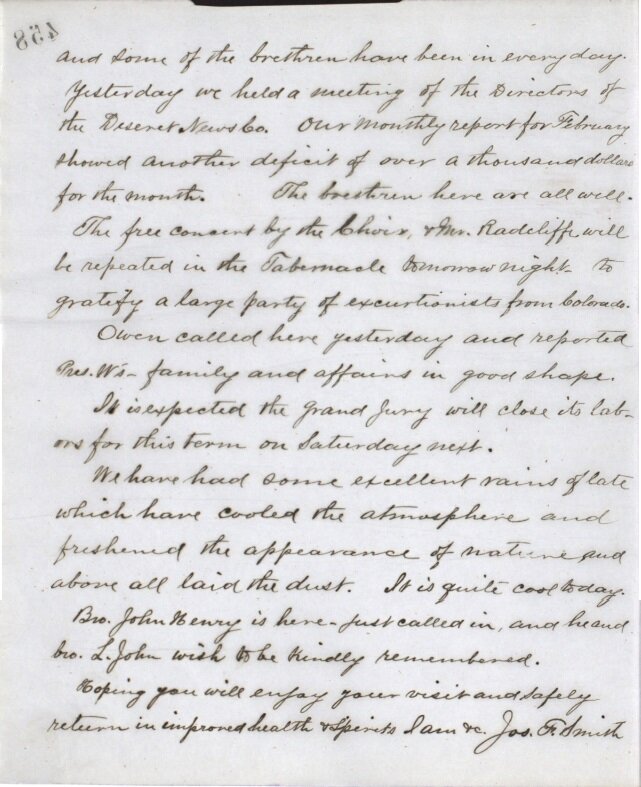 458
and some of the brethren have been in every day.
Yesterday we held a meeting of the Directors of
the Deseret News Co. Our monthly report for February
showed another deficit of over a thousand dollars
for the month. The brethren here are all well.
The free concert by the Choir, & Mr. Radcliffe will
be repeated in the Tabernacle tomorrow night - to
gratify a large party of excurtionists from Colorado.
Owen called here yesterday and reported
Pres. W's - family and affairs in good shape.
It is expected the Grand Jury will close its lab-
ors for this term on Saturday next.
We have had some excellent rains of late
which have cooled the atmosphere and
freshened the appearance of nature and
above all laid the dust. It is quite cool today.
Bro. John Henry is here - just called in, and he and
bro. L. John wish to be kindly remembered.
Hoping you will enjoy your visit and safely
return in improved health & Spirits I am &c. Jos. F. Smith